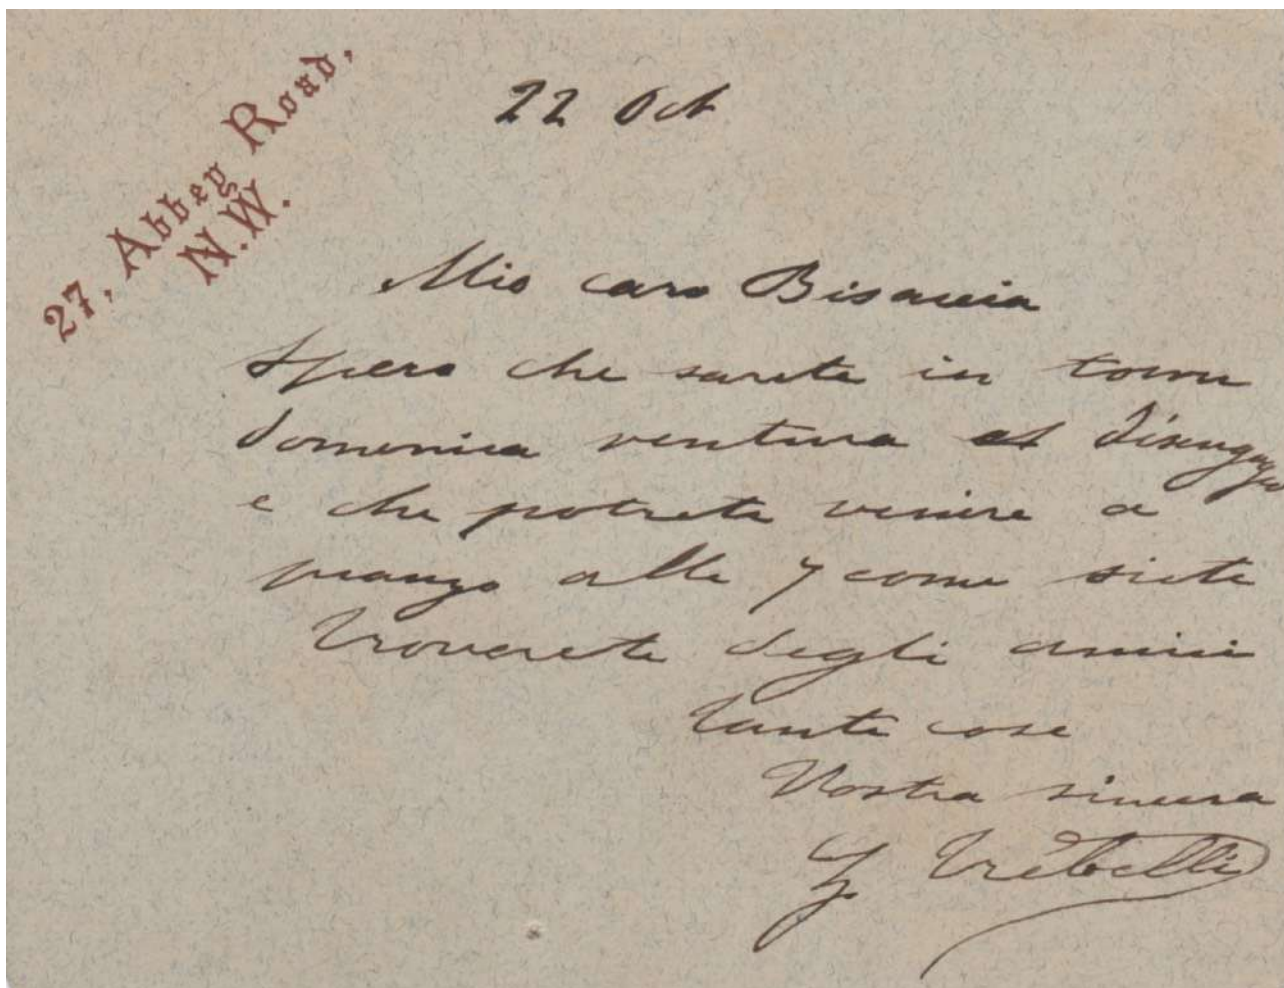 27, Abbey Road,
N.W.
22 Oct
Mio caro Bisaccia
Spero che sarete in town
domenica ventura et disengaged
e che potrete venire a
pranzo alle 7 come siete
troverete degli amici
tante cose
Vostra sincera
Z. Trebelli